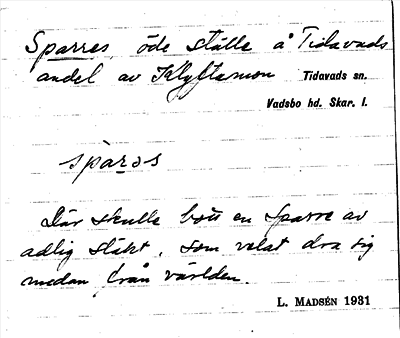 Sparres, öde ställe å Tidavads
andel av Klyftamon Tidavads sn.
Vadsbo hd. Skar. l.
spàrəs
Där skulle bott en Sparre av
adlig släkt, som velat dra sig
medan från världen.
L. MADSÉN 1931